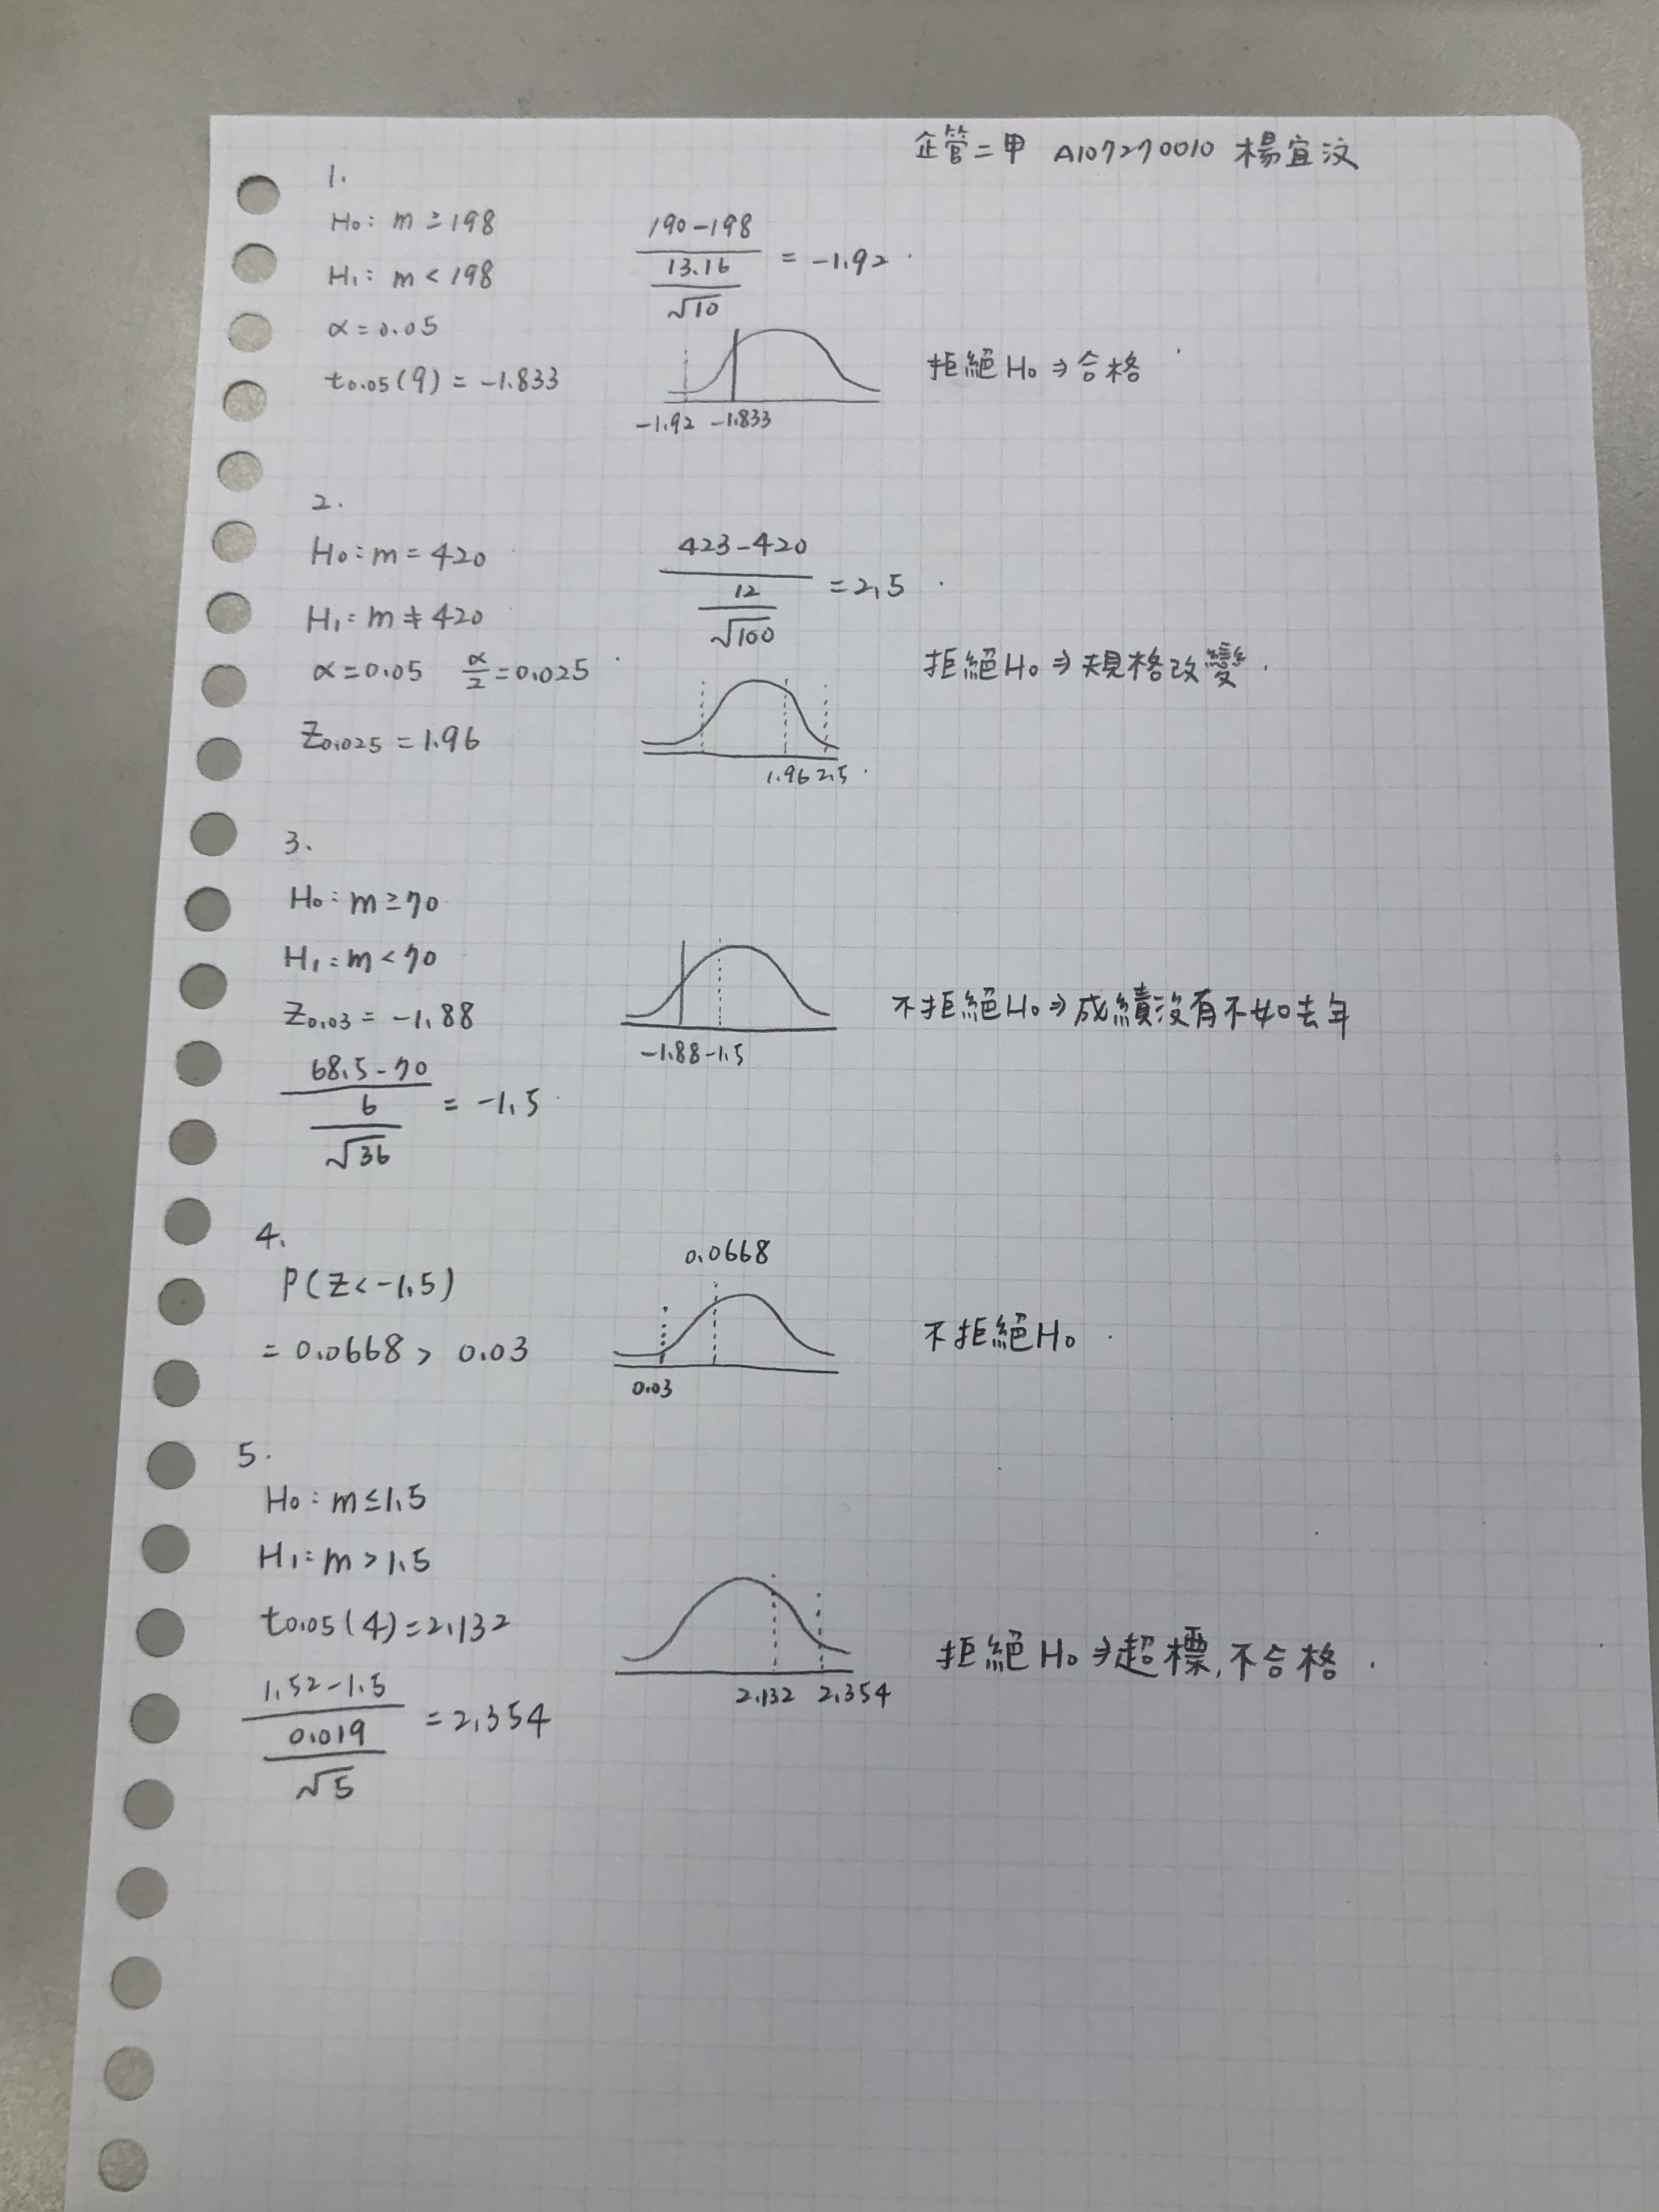 企管二甲 A107270010 楊宜汶
1.
H₀: m ≥ 198
H₁: m < 198
α = 0.05
t0.05(9) = -1.833
190-198 / (13.16 / √10) = -1.92
-1.92 -1.833
拒絕H₀ ⇒ 合格
2.
H₀: m = 420
H₁: m ≠ 420
α = 0.05 α/2 = 0.025
Z0.025 = 1.96
423-420 / (12 / √100) = 2.5
1.96 2.5
拒絕H₀ ⇒ 規格改變.
3.
H₀: m ≥ 70
H₁: m < 70
Z0.03 = -1.88
68.5-70 / (6 / √36) = -1.5
-1.88 -1.5
不拒絕H₀ ⇒ 成績沒有不如去年
4.
P(Z < -1.5)
= 0.0668 > 0.03
0.0668
0.03
不拒絕H₀
5.
H₀: m ≤ 1.5
H₁: m > 1.5
t0.05(4) = 2.132
1.52-1.5 / (0.019 / √5) = 2.354
2.132 2.354
拒絕H₀ ⇒ 超標, 不合格.